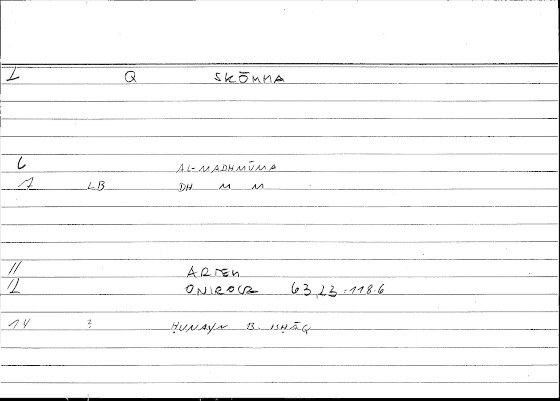 1 Q SKŌMMA
6 AL-MADHMŪMA
7 LB DH M M
11 ARTEM
12 ONIROCR 63,23 : 118.6
14 3 ḤUNAYN B. ISḤĀQ